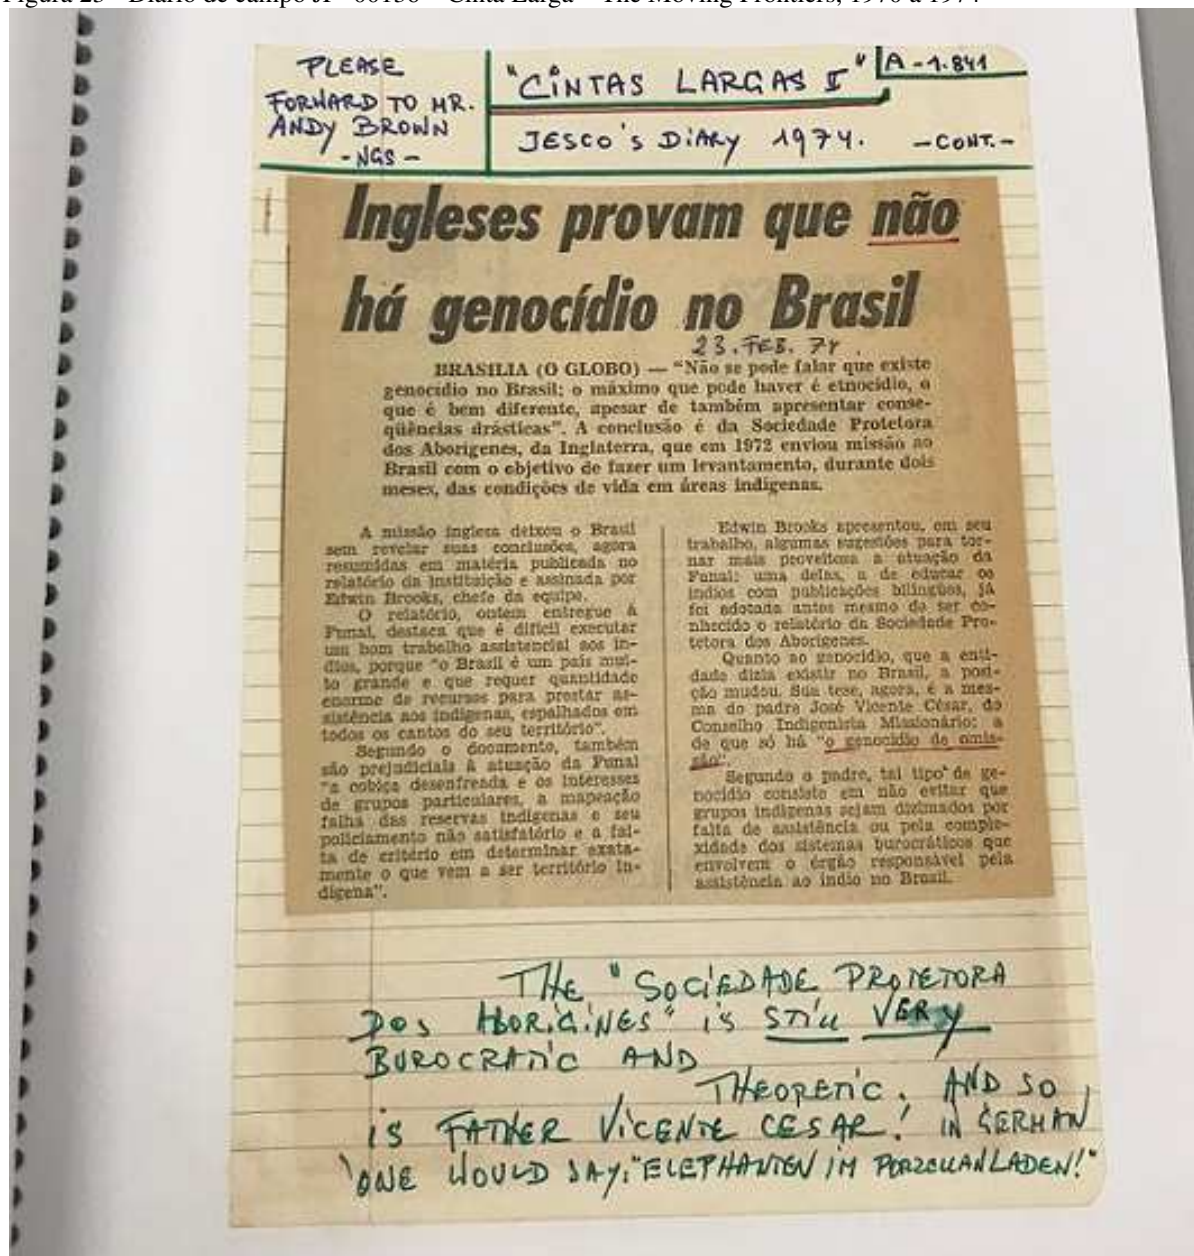 Figura 23 – Diário de campo JP 00156 – Cinta Larga – The Moving Frontiers, 1970 a 1974
PLEASE
FORWARD TO MR.
ANDY BROWN
- NGS -
"CINTAS LARGAS I"
A-1.841
JESCO'S DIARY 1974. - CONT. -
Ingleses provam que não
há genocídio no Brasil
23. FEB. 74.
BRASILIA (O GLOBO) — "Não se pode falar que existe
genocídio no Brasil; o máximo que pode haver é etnocídio, o
que é bem diferente, apesar de também apresentar conse-
qüências drásticas". A conclusão é da Sociedade Protetora
dos Aborígenes, da Inglaterra, que em 1972 enviou missão ao
Brasil com o objetivo de fazer um levantamento, durante dois
meses, das condições de vida em áreas indígenas.
A missão inglesa deixou o Brasil
sem revelar suas conclusões, agora
resumidas em matéria publicada no
relatório da instituição e assinada por
Edwin Brooks, chefe da equipe.
O relatório, ontem entregue à
Funai, destaca que é difícil executar
um bom trabalho assistencial aos ín-
dios, porque "o Brasil é um país mui-
to grande e que requer quantidade
enorme de recursos para prestar as-
sistência aos indígenas, espalhados em
todos os cantos do seu território".
Segundo o documento, também
são prejudiciais à atuação da Funai
"a cobiça desenfreada e os interesses
de grupos particulares, a mapeação
falha das reservas indígenas e seu
policiamento não satisfatório e a fal-
ta de critério em determinar exata-
mente o que vem a ser território in-
dígena".
Edwin Brooks apresentou, em seu
trabalho, algumas sugestões para tor-
nar mais proveitosa a atuação da
Funai: uma delas, a de educar os
índios com publicações bilingües, já
foi adotada antes mesmo de ser co-
nhecido o relatório da Sociedade Pro-
tetora dos Aborígenes.
Quanto ao genocídio, que a enti-
dade dizia existir no Brasil, a posi-
ção mudou. Sua tese, agora, é a mes-
ma do padre José Vicente César, do
Conselho Indigenista Missionário: a
de que só há "o genocídio de omis-
são".
Segundo o padre, tal tipo de ge-
nocídio consiste em não evitar que
grupos indígenas sejam dizimados por
falta de assistência ou pela comple-
xidade dos sistemas burocráticos que
envolvem o órgão responsável pela
assistência ao índio no Brasil.
THE "SOCIEDADE PROTETORA
DOS ABORIGINES" IS STILL VERY
BUROCRATIC AND
THEORETIC. AND SO
IS FATHER VICENTE CESAR! IN GERMAN
ONE WOULD SAY: "ELEPHANTEN IM PORZELLANLADEN!"